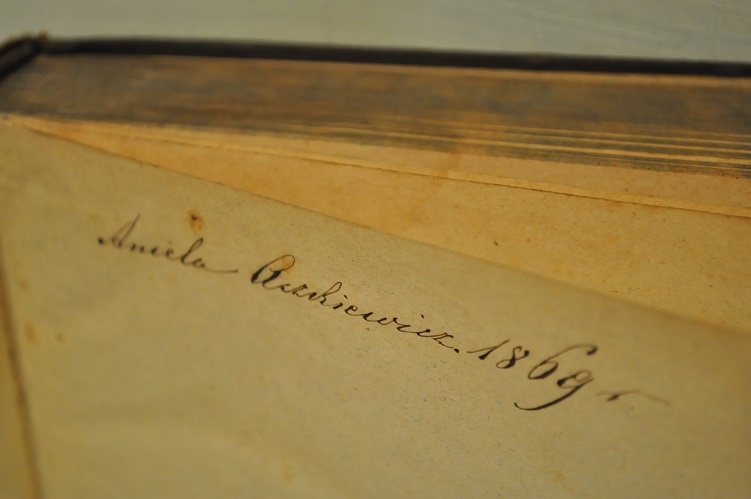 Aniela Aszkiewicz. 1869 r